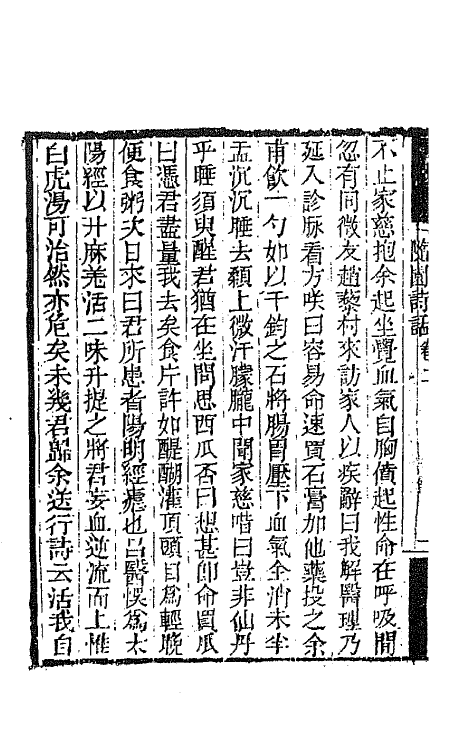 隨園詩話 卷二
不止家慈抱余起坐覺血氣自胸僨起性命在呼吸間
忽有同徵友趙藜村來訪家人以疾辭曰我解醫理乃
延入診脉看方咲曰容易命速買石膏加他藥投之余
甫飲一勺如以千鈞之石將腸胃壓下血氣全消未半
盂沉沉睡去顙上微汗朦朧中聞家慈唶曰豈非仙丹
乎睡須臾醒君猶在坐問思西瓜否曰想甚卽命買瓜
曰憑君盡量我去矣食片許如醍醐灌頂頭目爲輕晚
便食粥次日來曰君所患者陽明經瘧也呂醫悞爲太
陽經以升麻羗活二味升提之將君妄血逆流而上惟
白虎湯可治然亦危矣未幾君歸余送行詩云活我自